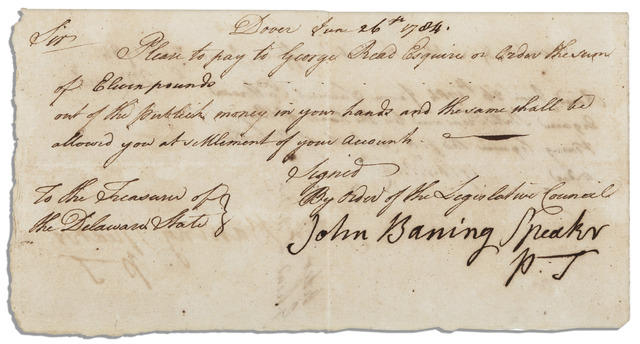 Dover June 26th 1784.
Sir
Please to pay to George Read Esquire or Order the sum
of Elevn pounds
out of the publick money in your hands and the same shall be
allowed you at settlement of your Accounts.
Signed
By Order of the Legislative Council
To the Treasurer of
the Delaware State
John Baning Speaker
P. T